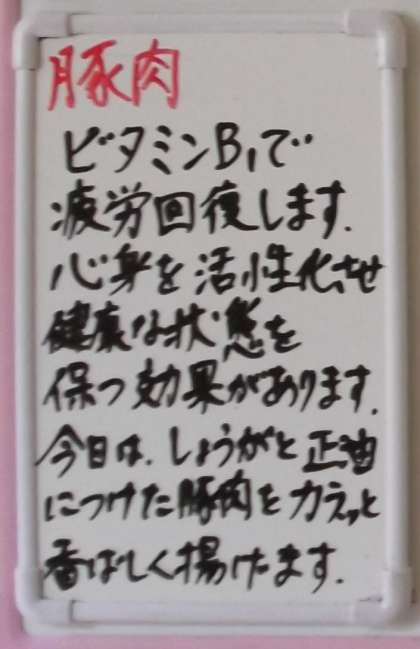 豚肉
ビタミンB1で
疲労回復します.
心身を活性化させ
健康な状態を
保つ効果があります.
今日は.しょうがと正油
につけた豚肉をカラッと
香ばしく揚げます.